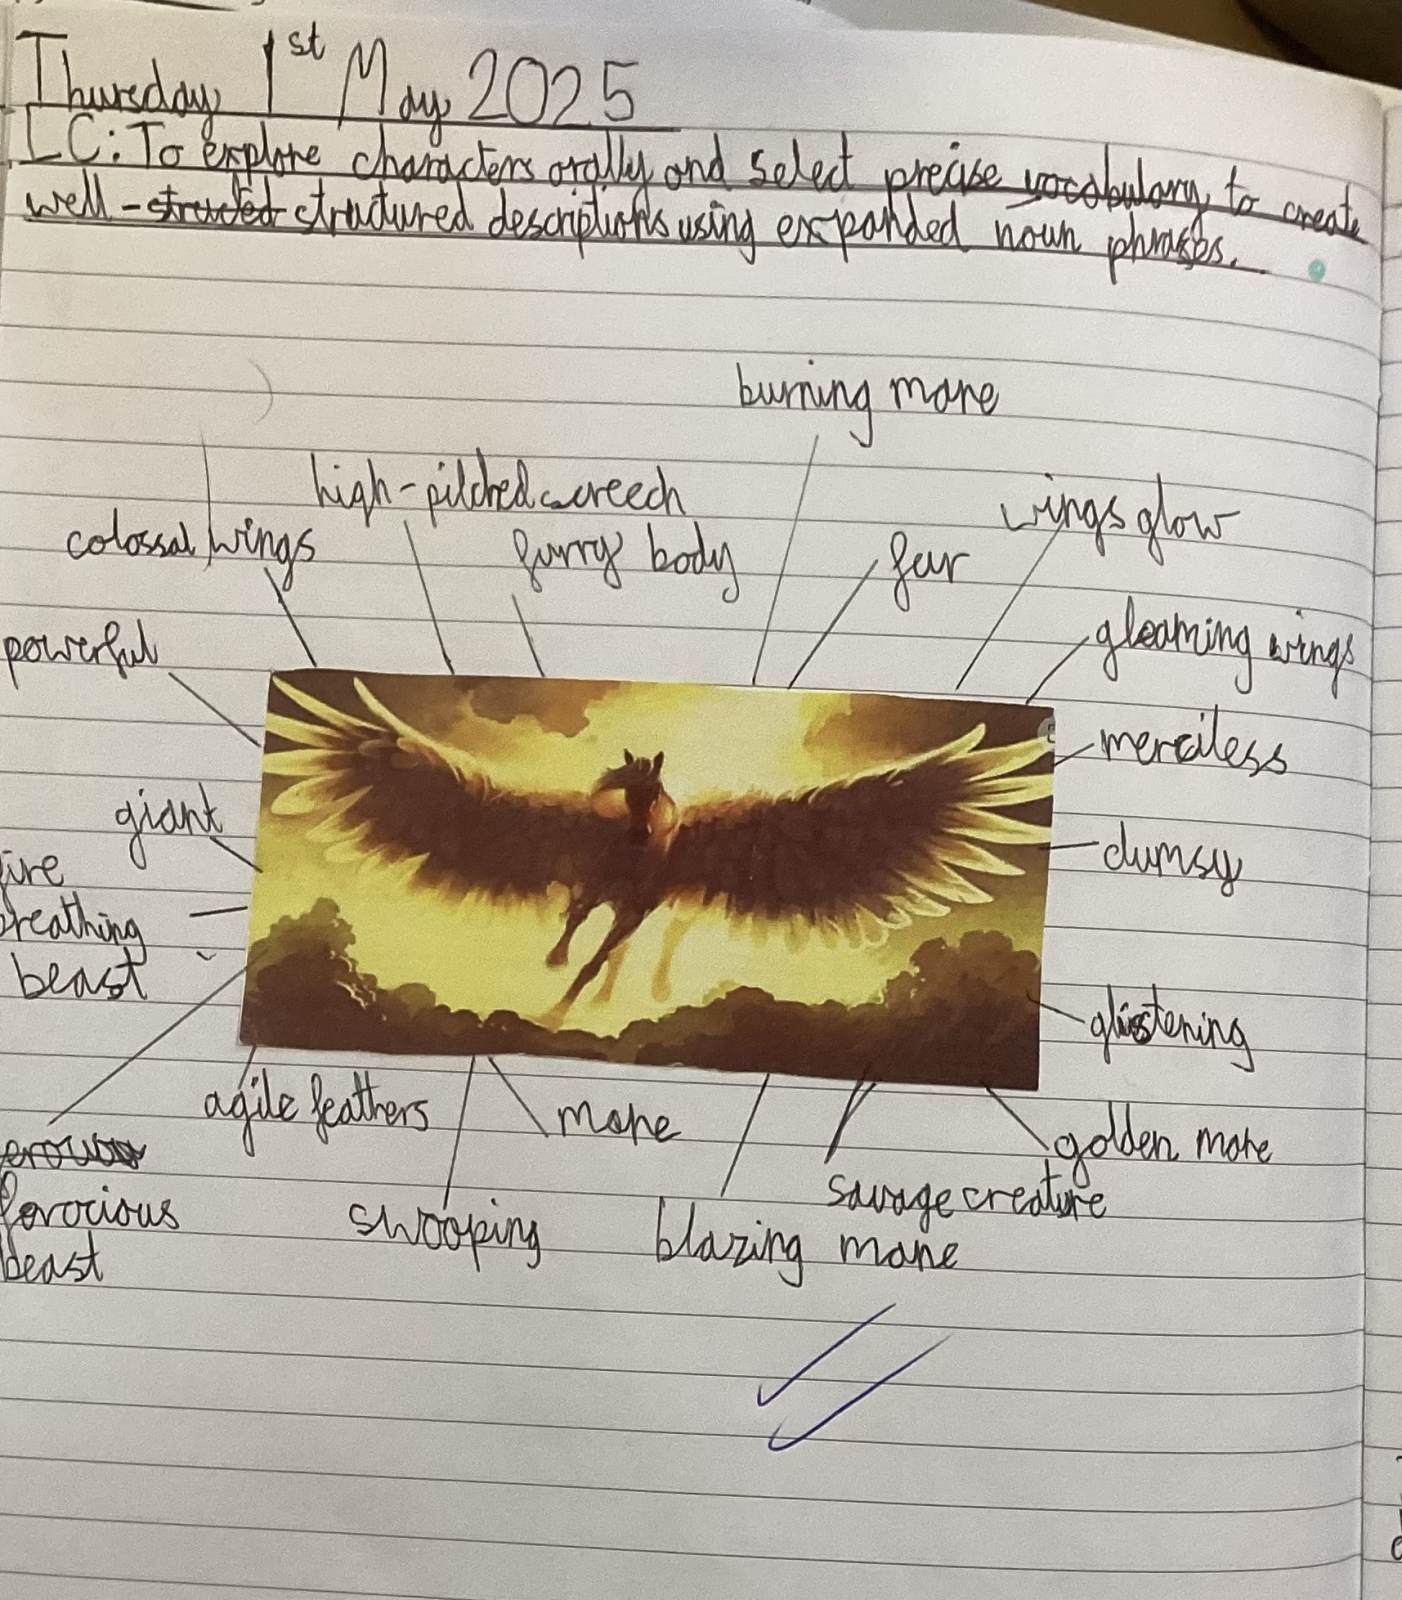 Thursday 1st May 2025
LC: To explore characters orally and select precise vocabulary to create
well-structed structured descriptions using expanded noun phrases.
burning mane
high-pitched screech
wings glow
colossal wings
furry body
fur
gleaming wings
powerful
merciless
giant
clumsy
ire
breathing
beast
glistening
agile feathers
mane
golden mane
ferocious
beast
swooping
savage creature
blazing mane